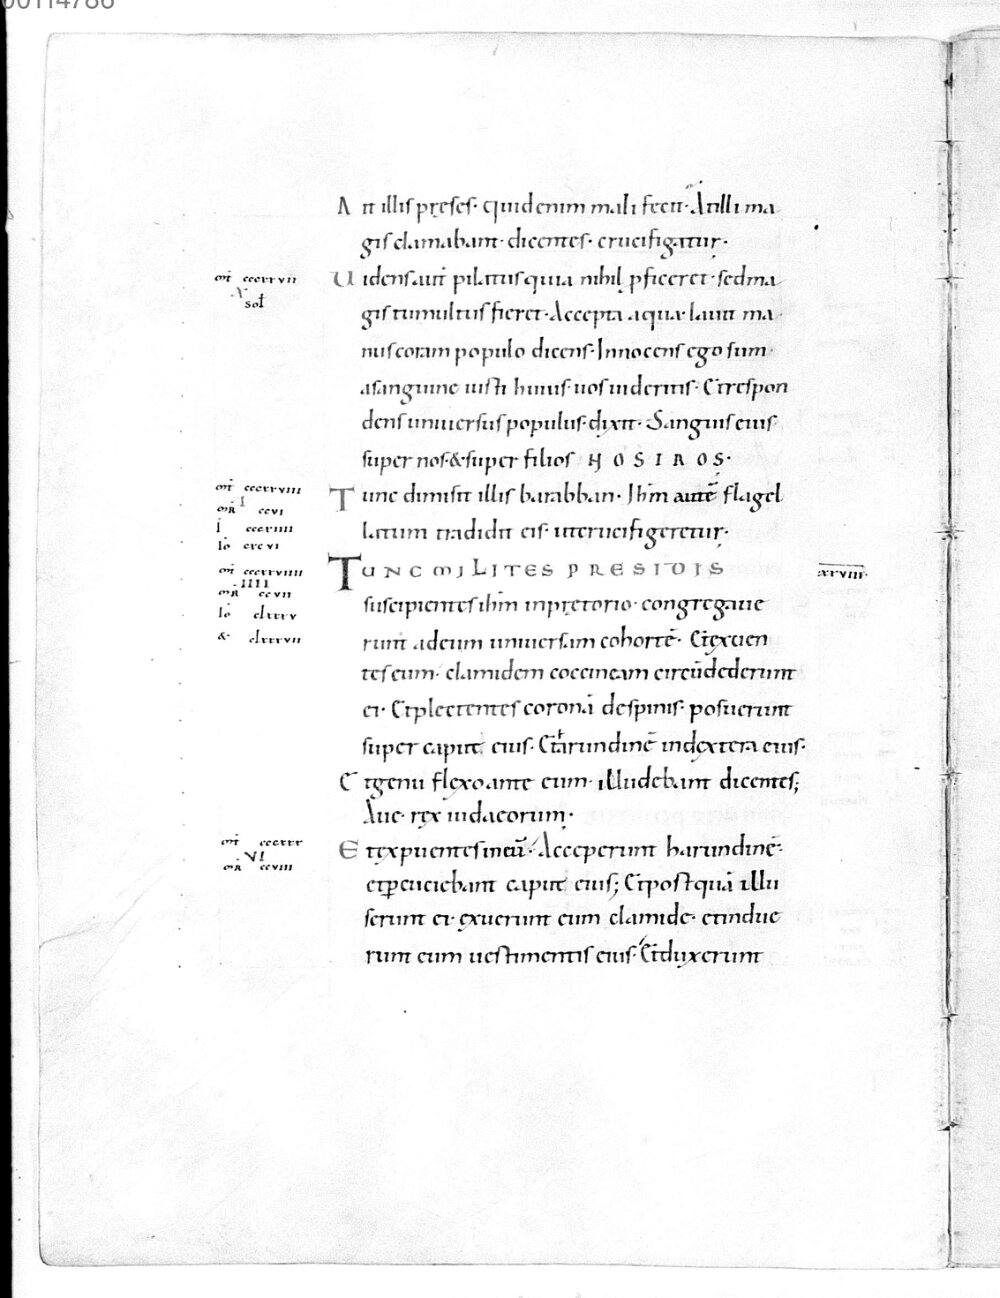 00114786
Ait illis preses· quid enim mali fecit· At illi ma
gis clamabant· dicentes· crucifigatur·
mt ccccxxvii
Uidens aut pilatus quia nihil pficeret· sed ma
X
sol
gis tumultus fieret· Accepta aqua· lauit ma
nus coram populo dicens· Innocens ego sum·
a sanguine iusti huius· uos uideritis· Et respon
dens uniuersus populus· dixit· Sanguis eius
super nos· & super filios NOSTROS·
mt ccccxxviii
Tunc dimisit illis barabban· Ihm autē flagel
I
mR ccvi
l cccviiii
latum tradidit eis· ut crucifigeretur·
Io cxcvi
mt ccccxxviiii
TUNC MILITES PRESIDIS
xxviii·
IIII
mR ccvii
suscipientes ihm in pretorio· congregaue
Io clxxxv
runt ad eum uniuersam cohortē· Et exuen
& clxxxvii
tes eum· clamidem coccineam circūdederunt
ei· Et plectentes coronā de spinis· posuerunt
super capite eius· Et arundinē in dextera eius·
Et genu flexo ante eum· illudebant dicentes;
Aue· rex iudaeorum·
mt ccccxxx
Et expuentes in eū· Acceperunt harundinē·
VI
mR ccviii
et pcuciebant capite eius; Et postquā illu
serunt ei· exuerunt eum clamide· et indue
runt eum uestimentis eius· Et duxerunt